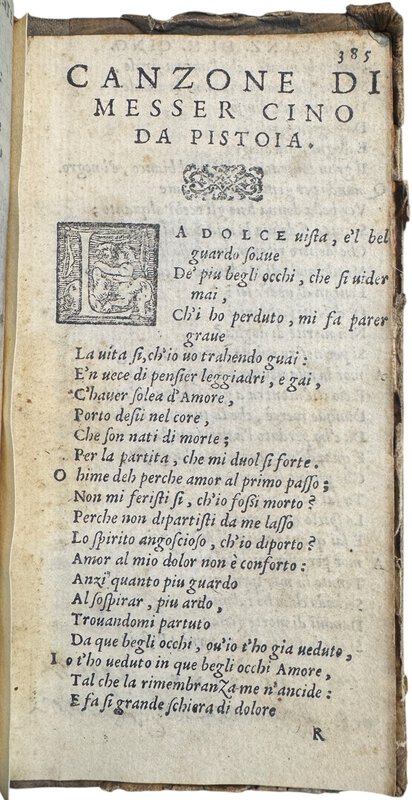 385
CANZONE DI
MESSER CINO
DA PISTOIA.
LA DOLCE uista, e'l bel
guardo soaue
De' piu begli occhi, che si uider
mai,
Ch'i ho perduto, mi fa parer
graue
La uita si, ch'io uo trahendo guai:
E'n uece di pensier leggiadri, e gai,
C'hauer solea d'Amore,
Porto desii nel core,
Che son nati di morte;
Per la partita, che mi duol si forte.
O hime deh perche amor al primo passo;
Non mi feristi si, ch'io fossi morto?
Perche non dipartisti da me lasso
Lo spirito angoscioso, ch'io diporto?
Amor al mio dolor non è conforto:
Anzi quanto piu guardo
Al sospirar, piu ardo,
Trouandomi partuto
Da que begli occhi, ou'io t'ho gia ueduto,
I o t'ho ueduto in que begli occhi Amore,
Tal che la rimembranza me n'ancide:
E fa si grande schiera di dolore
R